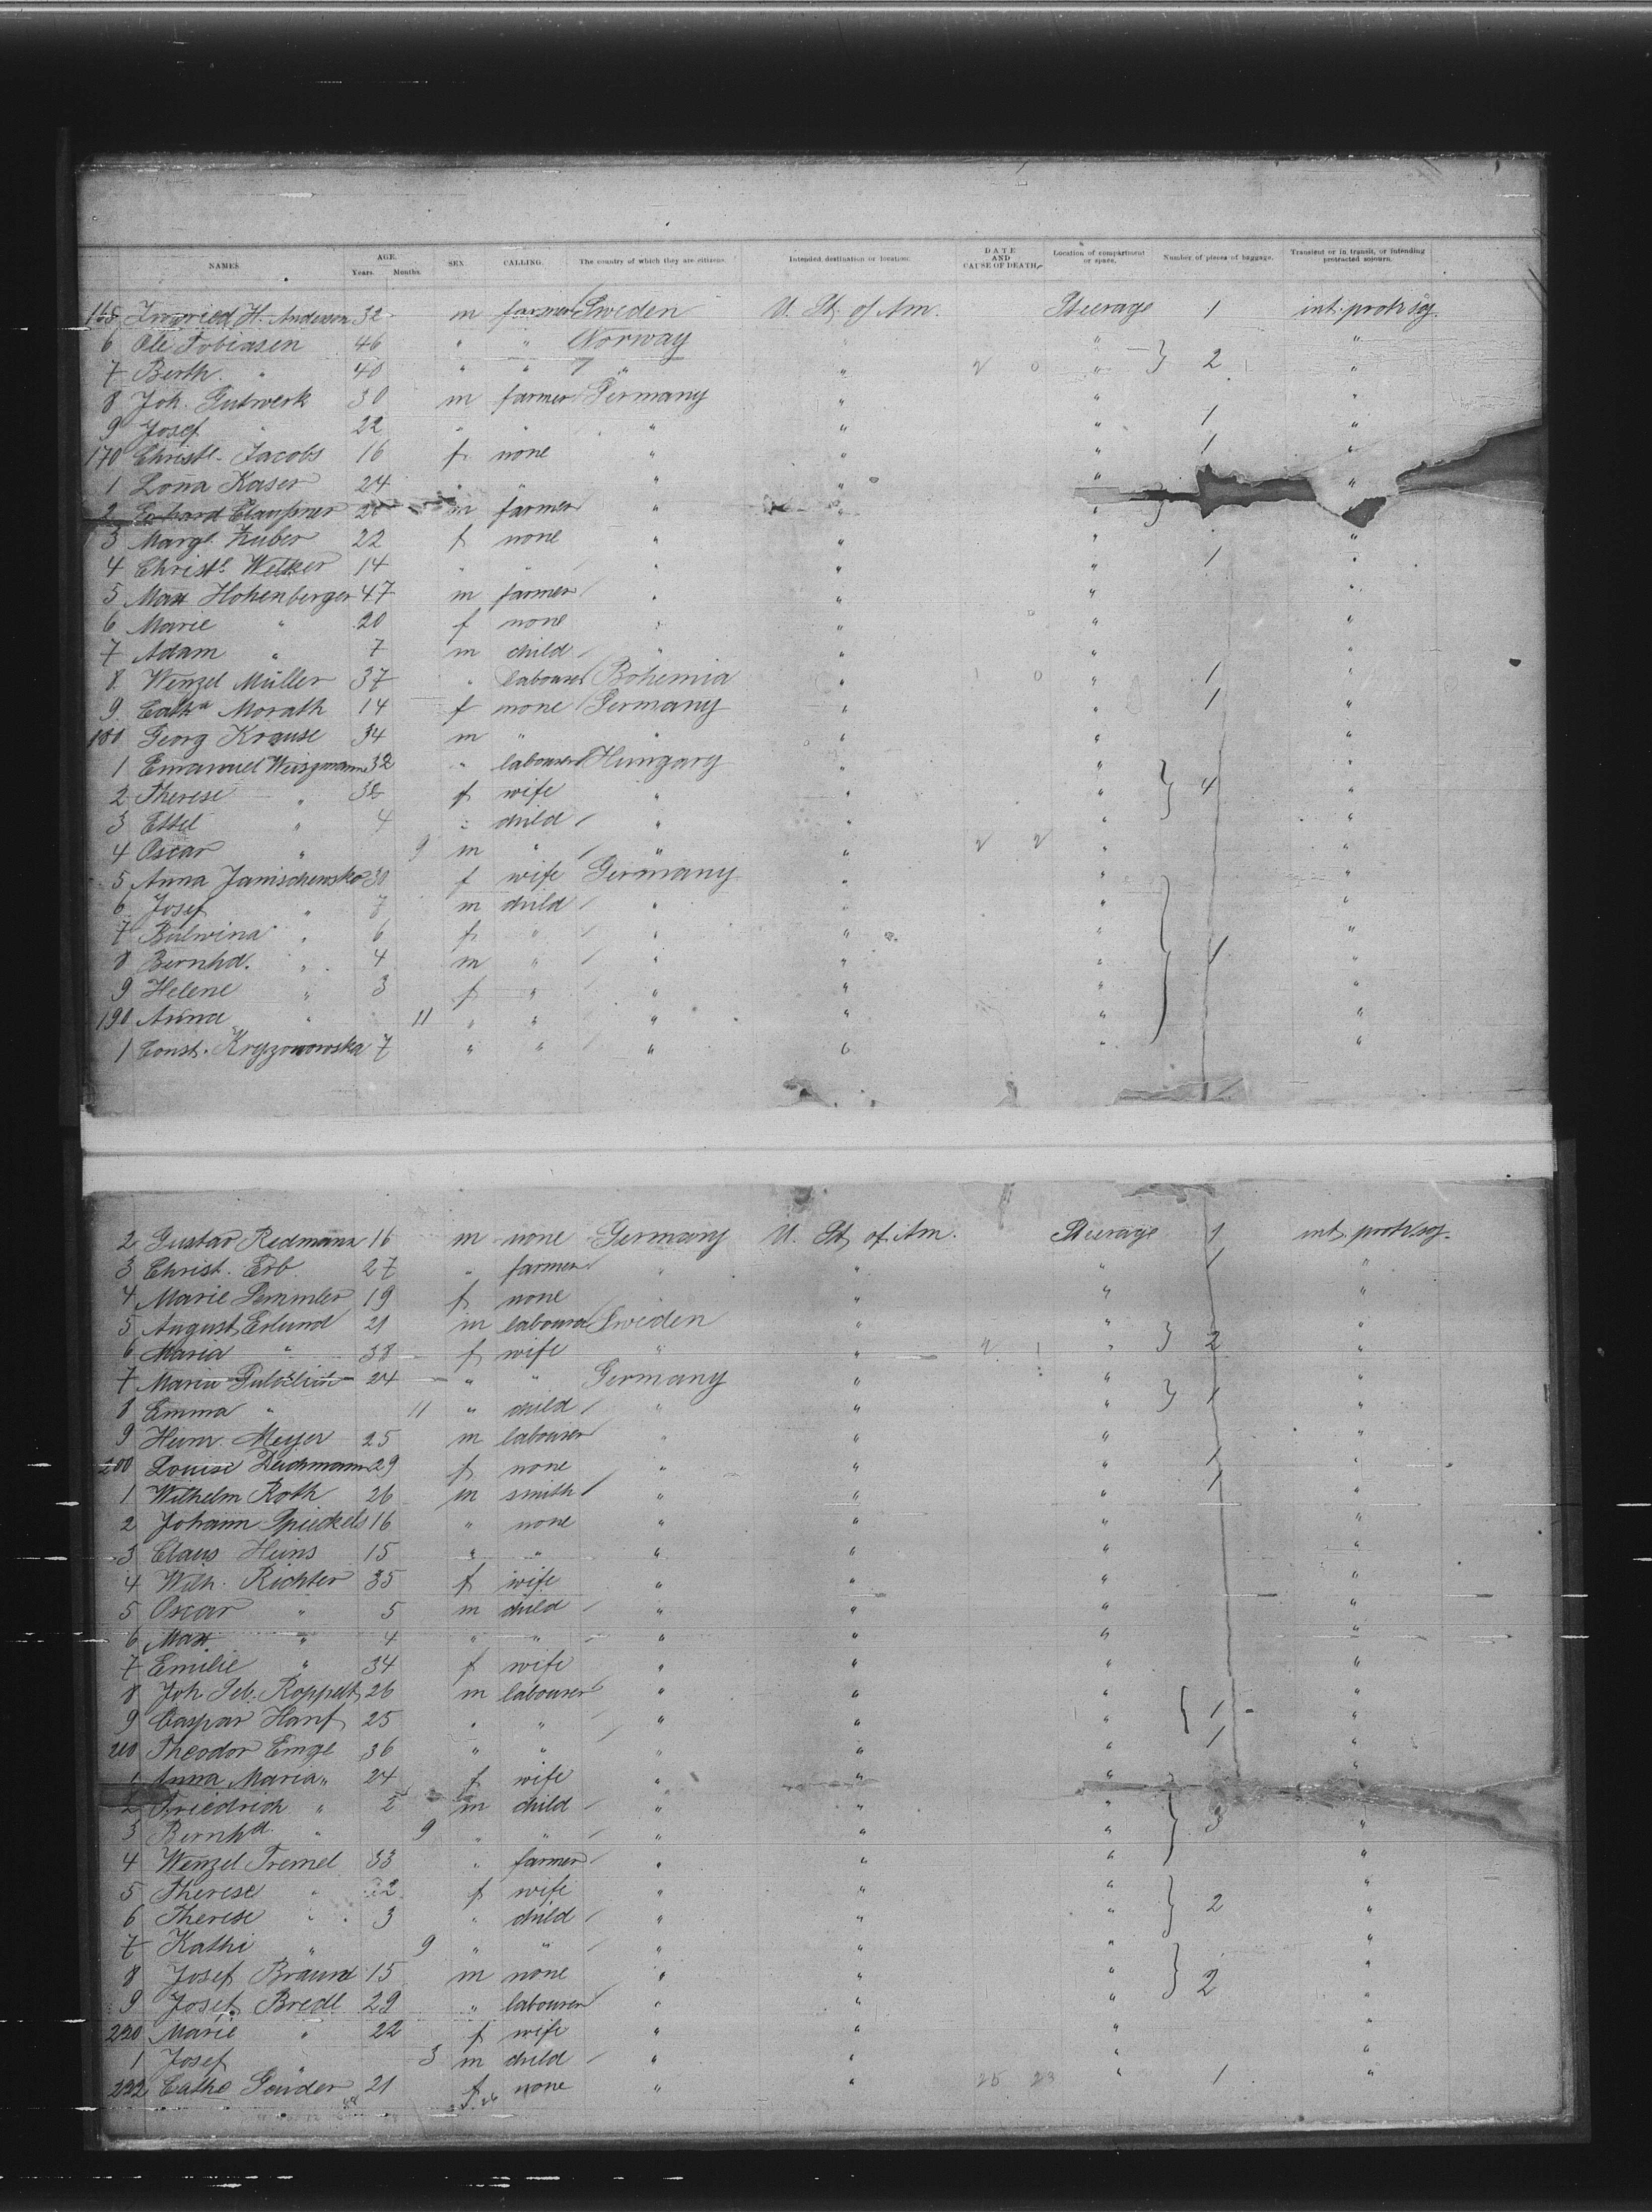 NAMES. AGE. SEX. CALLING. The country of which they are citizens. Intended destination or location. DATE AND CAUSE OF DEATH. Location of compartment or space. Number of pieces of baggage. Transient or in transit, or intending protracted sojourn.
Years. Months.
165 H. Anderson 32 m farmer Sweden U. St. of Am. Steerage 1 int. protr. soj.
6 Ole Tobiasen 46 " " Norway " " "
7 Berth. " 40 " " " " " } 2 "
8 Joh. Gutwerk 30 m farmer Germany " " "
9 Josef " 22 " " " " " 1 "
170 Christe. Jacobs 16 f none " " " 1 "
1 Lona Kaser 24 " " " " " "
2 Erhard 20 m farmer " " "
3 Margt. Huber 22 f none " " " "
4 Christe. Welker 14 " " " " " 1 "
5 Max Hohenberger 47 m farmer " " " "
6 Marie " 20 f none " " " "
7 Adam " 7 m child " " " "
8 Wenzel Müller 37 " labourer Bohemia " " 1 "
9 Catha Morath 14 f none Germany " " 1 "
180 Georg Krause 34 m " " " " "
1 Emanuel Weiszmann 32 " labourer Hungary " " "
2 Therese " 32 f wife " " " } 4 "
3 Ettel " 4 " child " " " "
4 Oscar " 9 m " " " " "
5 Anna Janischewska 30 f wife Germany " " "
6 Josef " 7 m child " " " "
7 Balwina " 6 f " " " " "
8 Bernhd. " 4 m " " " " } 1 "
9 Helene " 3 f " " " " "
190 Anna " 11 " " " " " "
1 Const. Kryzonowska 7 " " " " " "
2 Gustav Redmann 16 m none Germany U. St. of Am. Steerage 1 int. protr. soj.
3 Christ. Erb 27 " farmer " " " 1 "
4 Marie Semmler 19 f none " " " "
5 August Erlund 21 m labourer Sweden " " "
6 Maria " 38 f wife " " " } 2 "
7 Maria 24 " " Germany " " "
8 Emma " 11 " child " " " } 1 "
9 Heinr. Meyer 25 m labourer " " " "
200 Louise Deichmann 29 f none " " " 1 "
1 Wilhelm Roth 26 m smith " " " 1 "
2 Johann Spieckels 16 " none " " " "
3 Claus Heins 15 " " " " " "
4 Wilh. Richter 35 f wife " " " "
5 Oscar " 5 m child " " " "
6 Max " 4 " " " " " "
7 Emilie " 34 f wife " " " "
8 Joh. Seb. Roppelt 26 m labourer " " " "
9 Caspar Hanf 25 " " " " " { 1 "
210 Theodor Emge 36 " " " " " 1 "
1 Anna Maria " 24 f wife " " " "
2 Friedrich " 2 m child " " " "
3 Bernhd. " 9 " " " " " } 3 "
4 Wenzel Tremel 33 " farmer " " " "
5 Therese " 32 f wife " " " "
6 Therese " 3 " child " " " } 2 "
7 Kathi " 9 " " " " " "
8 Josef Braund 15 m none " " " "
9 Josef Bredl 29 " labourer " " " } 2 "
220 Marie " 22 f wife " " " "
1 Josef " 3 m child " " " "
222 Cathe 21 f none " " 25 23 " 1 "